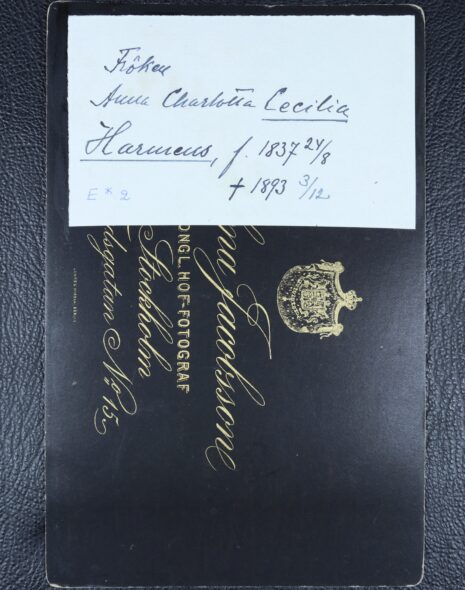 Fröken
Anna Charlotta Cecilia
Harmens, f. 1837 24/8
† 1893 3/12
E * 2
na Jacobsson
ONGL. HOF-FOTOGRAF
Stockholm
dsgatan No 15.